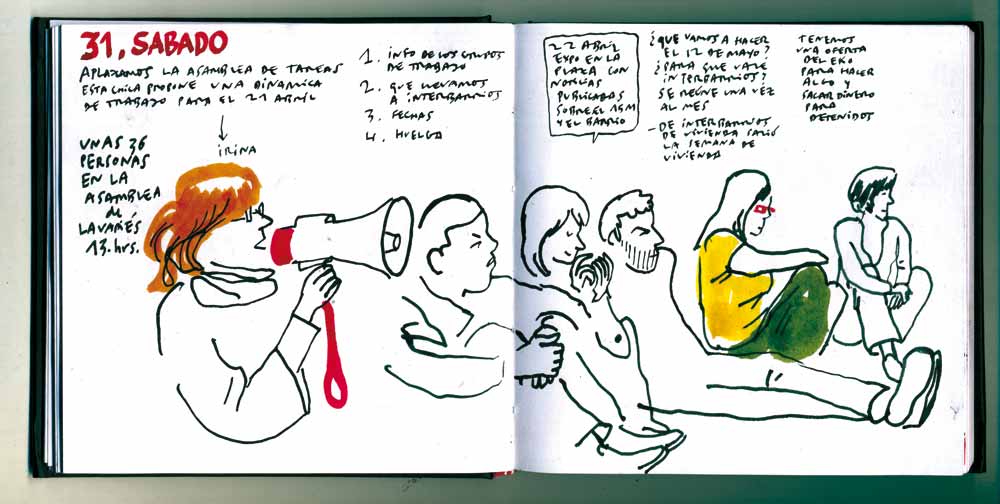 31, SABADO
APLAZAMOS LA ASAMBLEA DE TAREAS
ESTA CHICA PROPONE UNA DINAMICA
DE TRABAJO PARA EL 21 ABRIL
IRINA
UNAS 36
PERSONAS
EN LA
ASAMBLEA
de
LAVAPIÉS
13.hrs.
1. INFO DE LOS GRUPOS
DE TRABAJO
2. QUE LLEVAMOS
A INTERBARRIOS
3. FECHAS
4. HUELGA
22 ABRIL
EXPO EN LA
PLAZA CON
NOTICIAS
PUBLICADAS
SOBRE EL 15M
Y EL BARRIO
¿QUE VAMOS A HACER
EL 12 DE MAYO?
¿PARA QUE VALE
INTERBARRIOS?
SE REUNE UNA VEZ
AL MES
- DE INTERBARRIOS
DE VIVIENDA SALIÓ
LA SEMANA DE
VIVIENDA
TENEMOS
UNA OFERTA
DEL EKO
PARA HACER
ALGO Y
SACAR DINERO
PARA
DETENIDOS